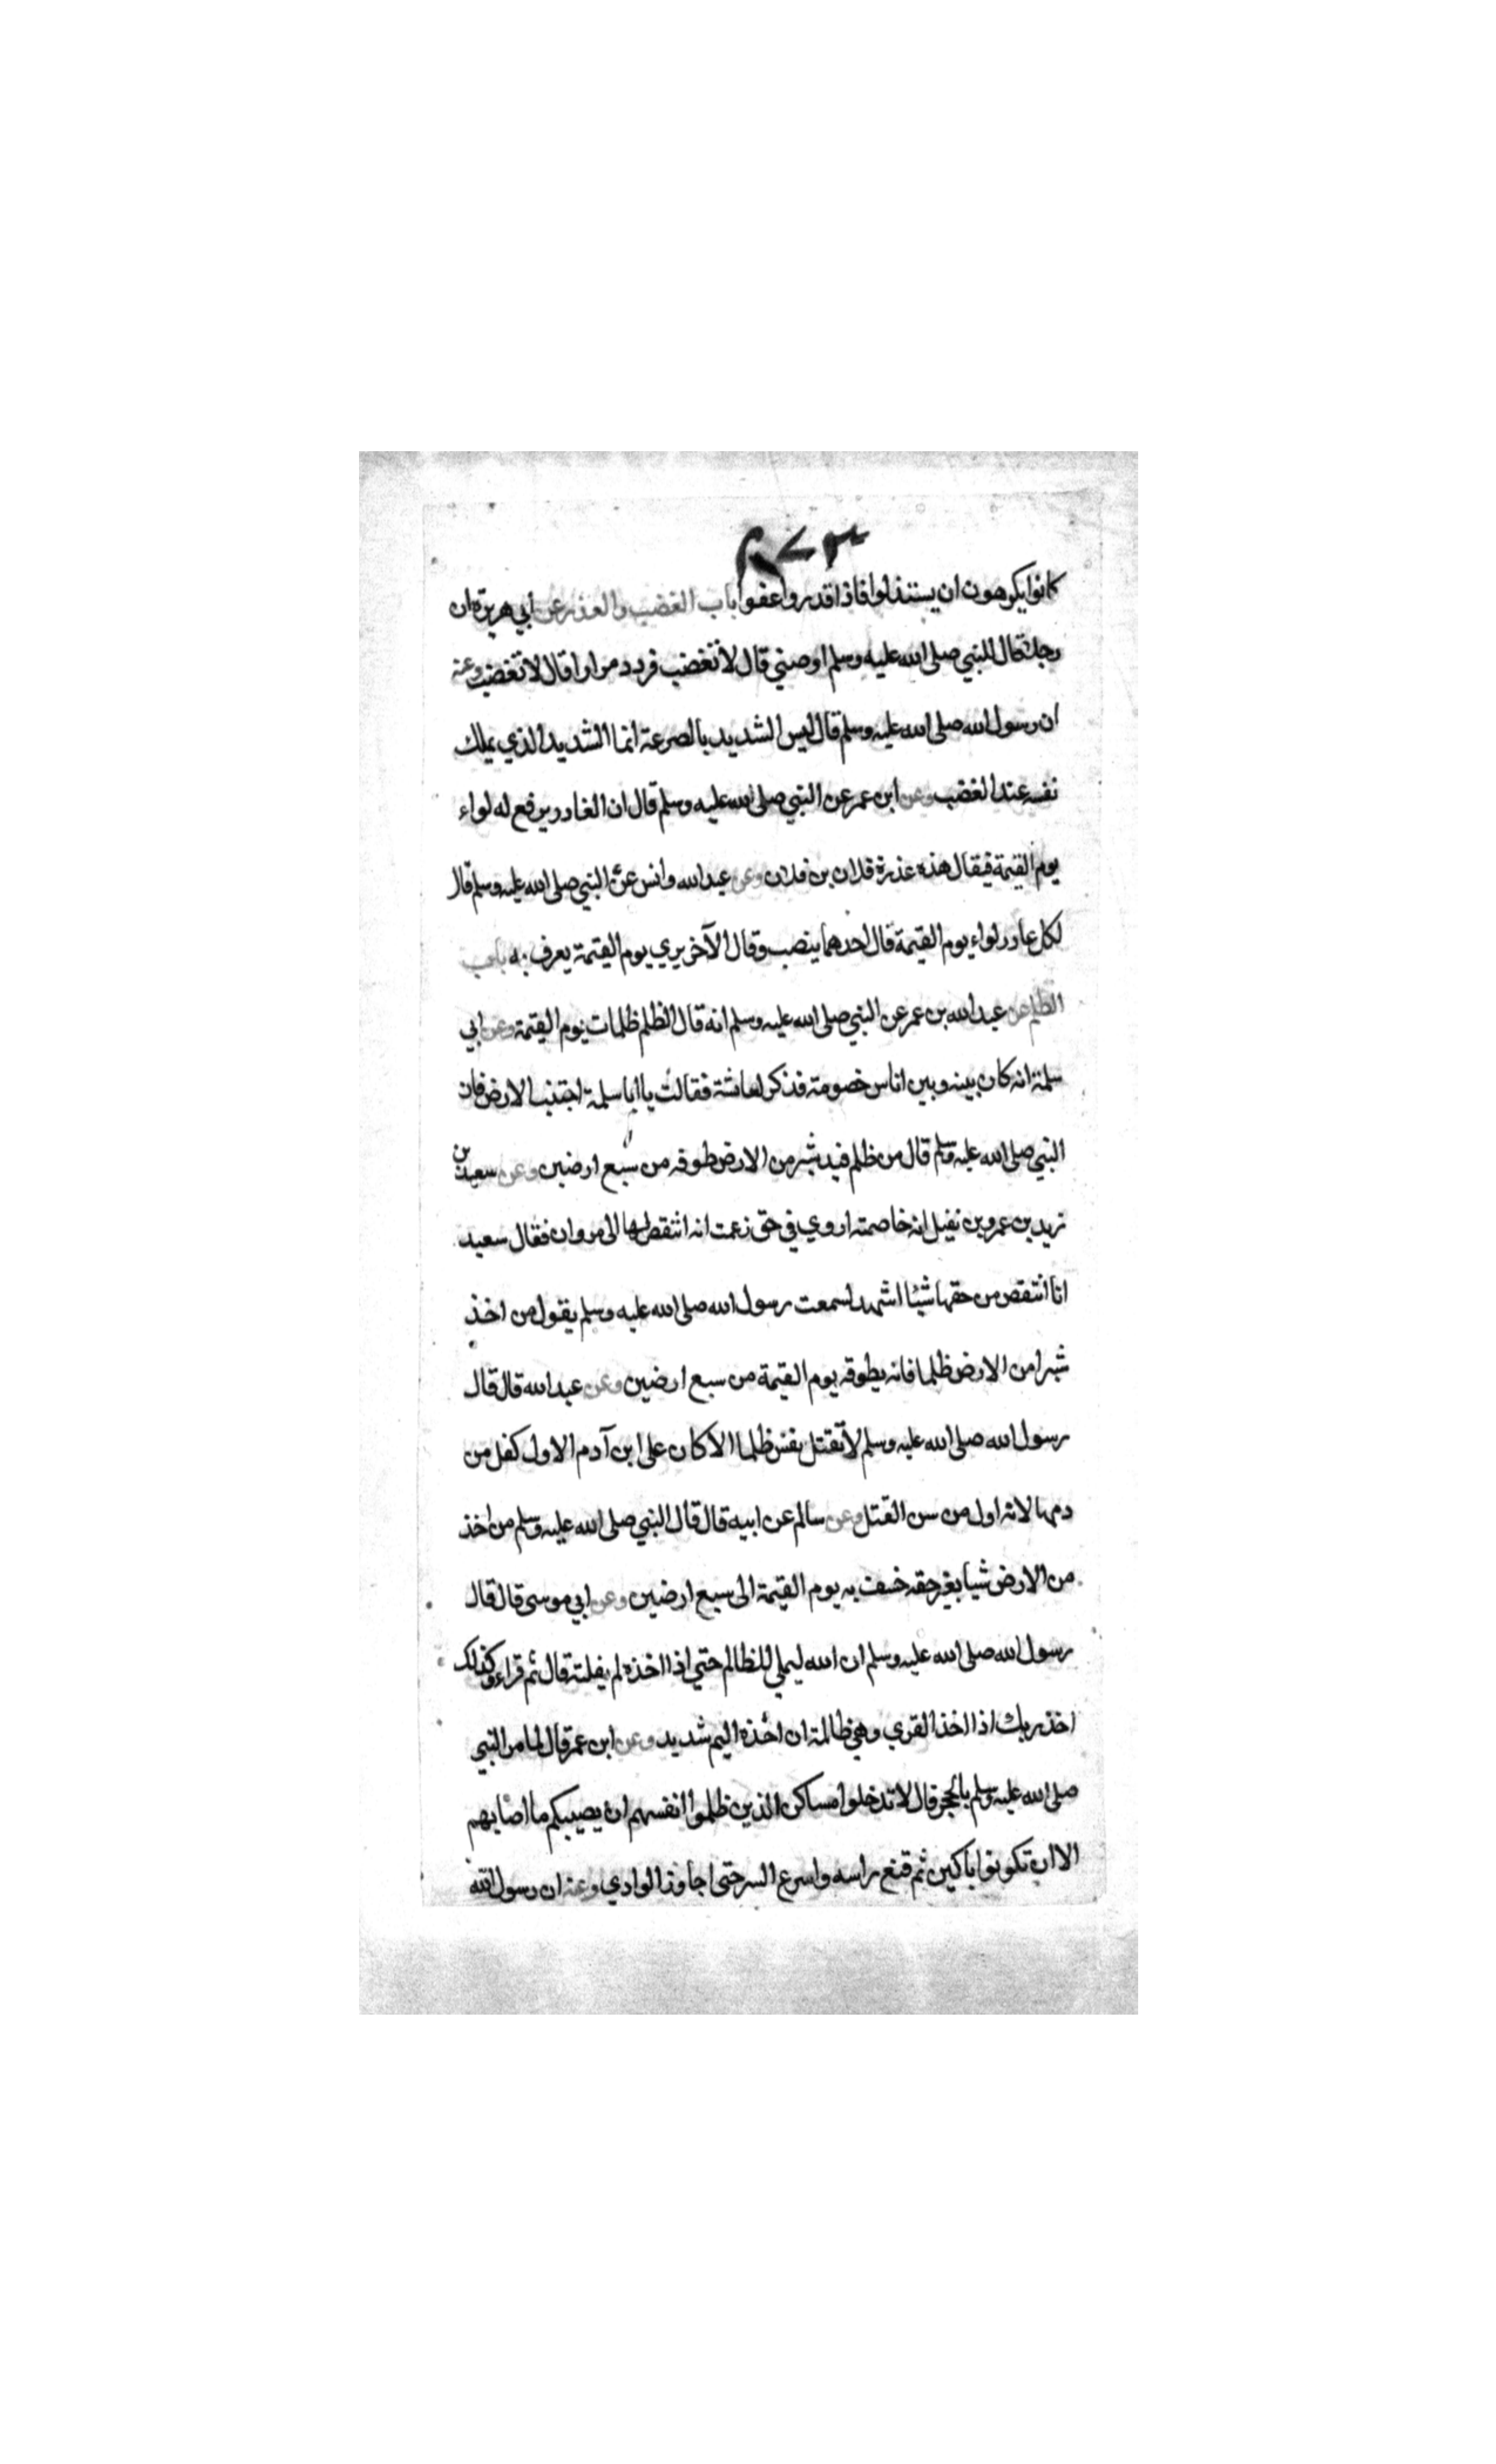 كانوا يكرهون ان يستذلوا فاذا قدروا عفوا باب الغضب والغدر عن أبي هريرة ان
رجلا قال للنبي صلى الله عليه وسلم اوصني قال لا تغضب فردد مرارا قال لا تغضب وعنه
ان رسول الله صلى الله عليه وسلم قال ليس الشديد بالصرعة انما الشديد الذي يملك
نفسه عند الغضب وعن ابن عمر عن النبي صلى الله عليه وسلم قال ان الغادر يرفع له لواء
يوم القيمة فيقال هذه غدرة فلان بن فلان وعن عبد الله وانس عن النبي صلى الله عليه وسلم قال
لكل غادر لواء يوم القيمة قال احدهما ينصب وقال الآخر يري يوم القيمة يعرف به باب
الظلم عن عبد الله بن عمر عن النبي صلى الله عليه وسلم انه قال الظلم ظلمات يوم القيمة وعن ابي
سلمة انه كان بينه وبين اناس خصومة فذكر لعائشة فقالت يا ابا سلمة اجتنب الارض فان
النبي صلى الله عليه وسلم قال من ظلم قيد شبر من الارض طوقه من سبع ارضين وعن سعيد بن
زيد بن عمرو بن نفيل انه خاصمته اروي في حق زعمت انه انتقص لها الى مروان فقال سعيد
انا انتقص من حقها شيئا اشهد لسمعت رسول الله صلى الله عليه وسلم يقول من اخذ
شبرا من الارض ظلما فانه يطوقه يوم القيمة من سبع ارضين وعن عبد الله قال قال
رسول الله صلى الله عليه وسلم لا تقتل نفس ظلما الا كان على ابن آدم الاول كفل من
دمها لانه اول من سن القتل وعن سالم عن ابيه قال قال النبي صلى الله عليه وسلم من اخذ
من الارض شيا بغير حقه خسف به يوم القيمة الى سبع ارضين وعن ابي موسى قال قال
رسول الله صلى الله عليه وسلم ان الله ليملي للظالم حتي اذا اخذه لم يفلته قال ثم قراء وكذلك
اخذ ربك اذا اخذ القري وهي ظالمة ان اخذه اليم شديد وعن ابن عمر قال لما مر النبي
صلى الله عليه وسلم بالحجر قال لا تدخلوا مساكن الذين ظلموا انفسهم ان يصيبكم ما اصابهم
الا ان تكونوا باكين ثم قنع راسه واسرع السير حتى اجاوز الوادي وعنه ان رسول الله